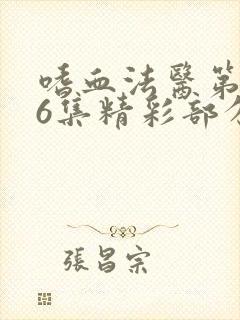 嗜血法醫第
6集精彩部分
張昌宗